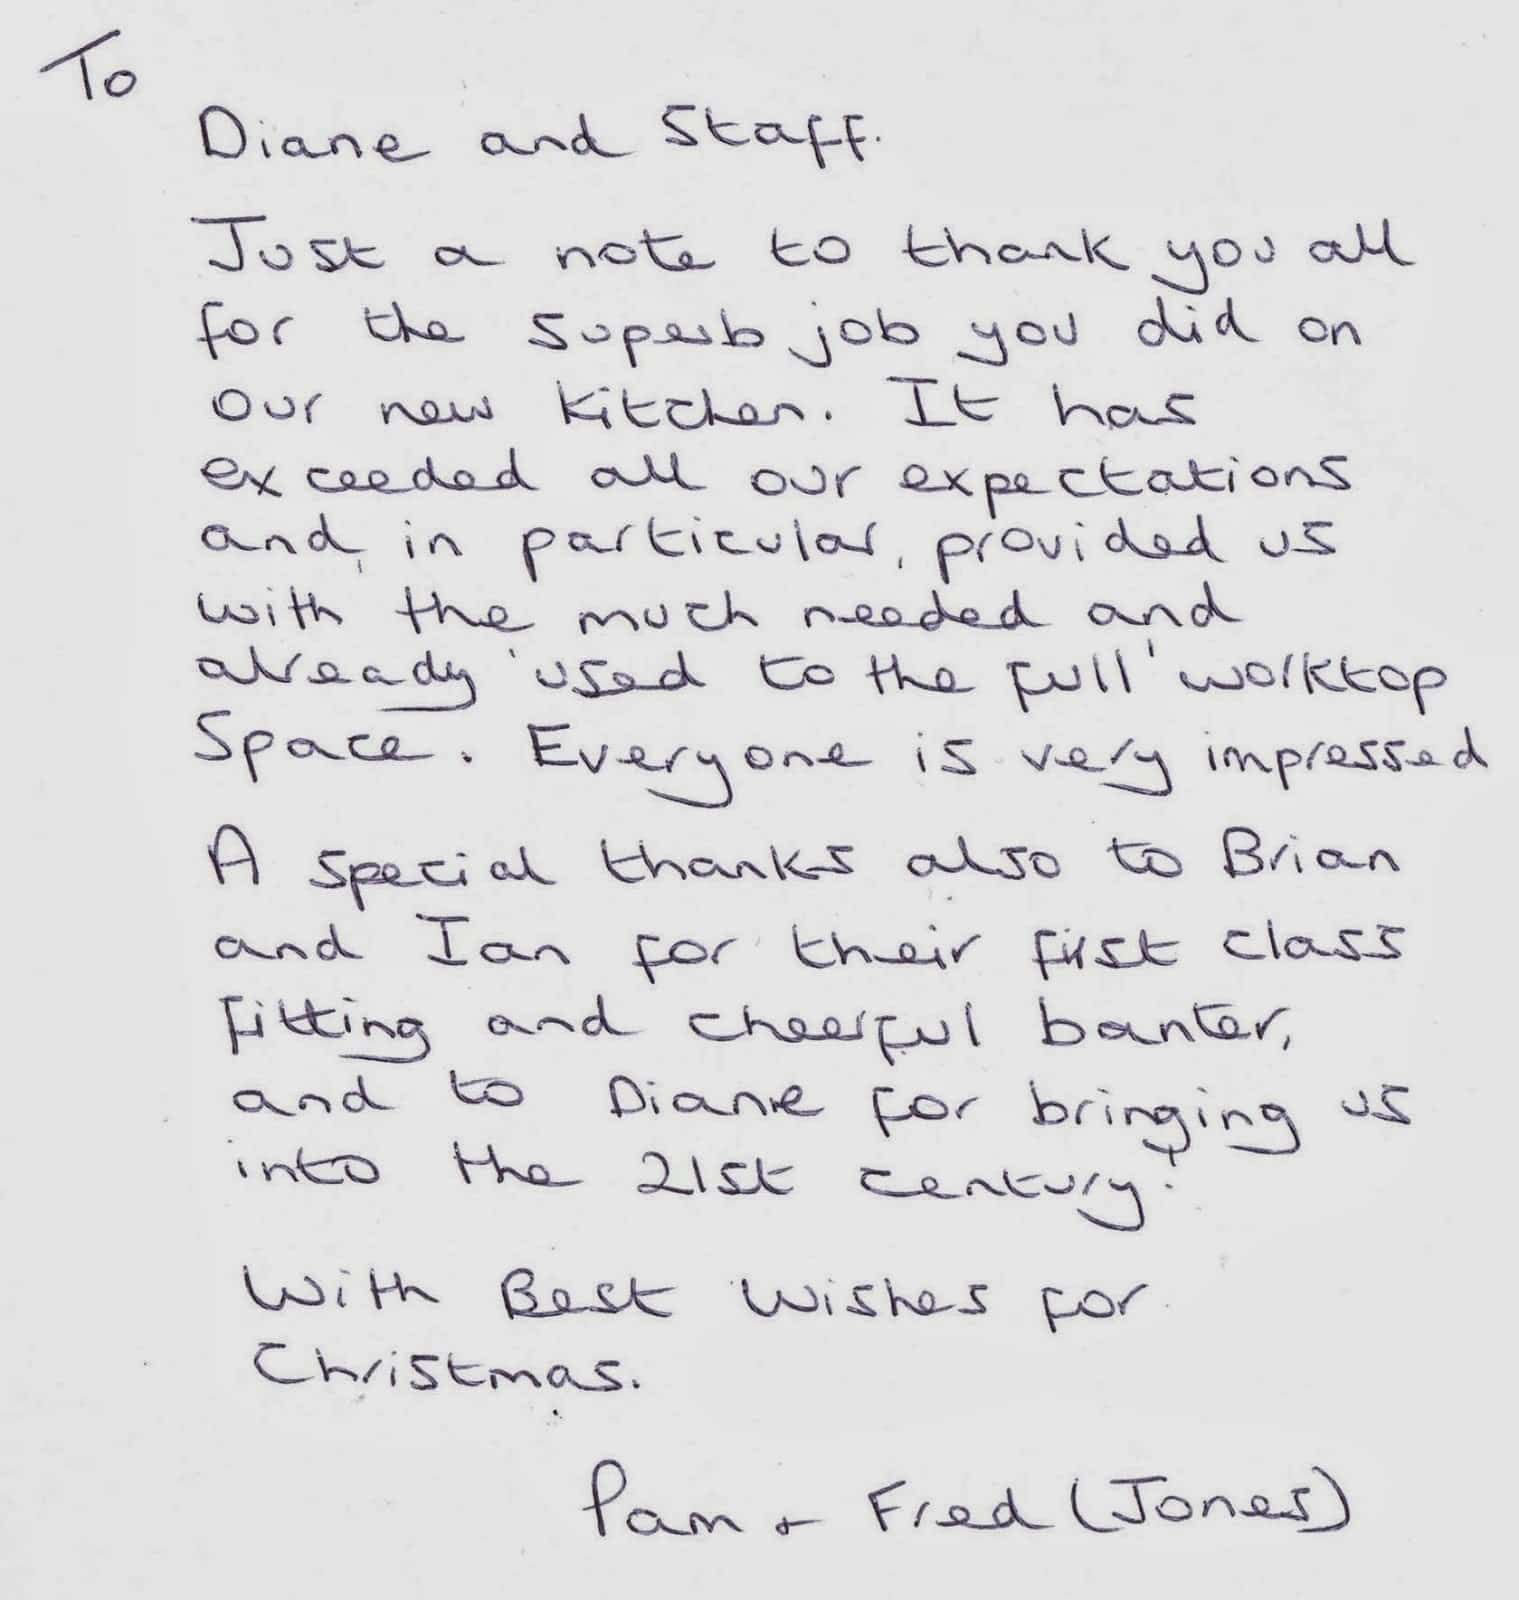 To
Diane and Staff.
Just a note to thank you all
for the superb job you did on
our new kitchen. It has
exceeded all our expectations
and, in particular, provided us
with the much needed and
already 'used to the full' worktop
space. Everyone is very impressed
A special thanks also to Brian
and Ian for their first class
fitting and cheerful banter,
and to Diane for bringing us
into the 21st century!
With Best Wishes for
Christmas.
Pam + Fred (Jones)